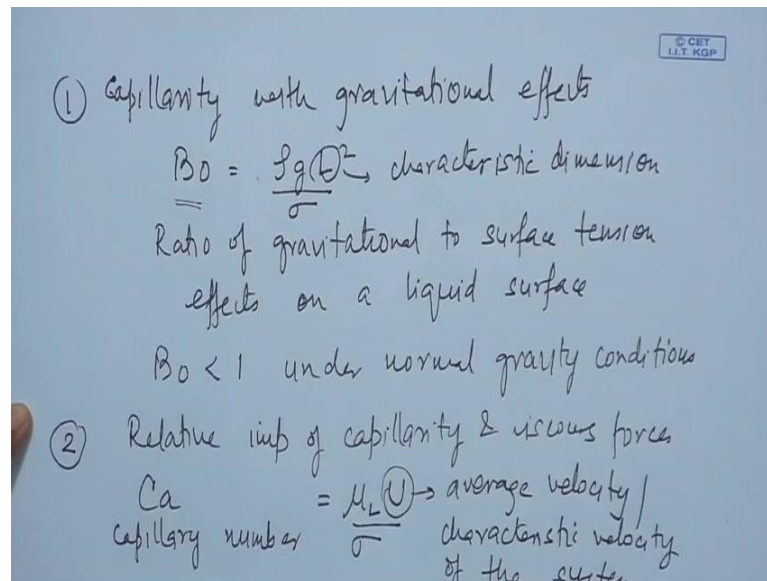 © CET
I.I.T. KGP
① Capillarity with gravitational effects
Bo = ρgL²/σ → characteristic dimension
Ratio of gravitational to surface tension
effects on a liquid surface
Bo < 1 under normal gravity conditions
② Relative imp of capillarity & viscous forces
Ca = μ_L U/σ → average velocity /
Capillary number characteristic velocity
of the